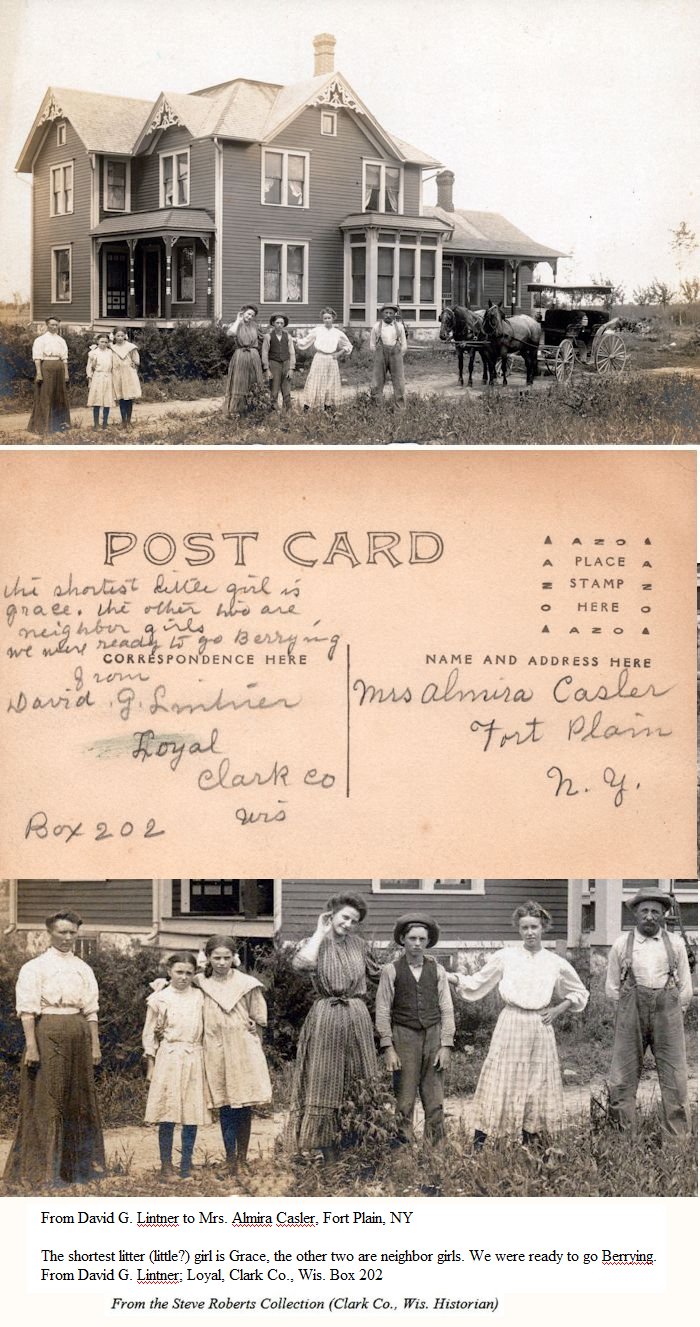 POST CARD
A Z O
PLACE
STAMP
HERE
A Z O
the shortest little girl is
grace. the other two are
neighbor girls
we were ready to go Berrying
CORRESPONDENCE HERE
from
David G. Lintner
Loyal
Clark Co
Wis
Box 202
NAME AND ADDRESS HERE
Mrs Almira Casler
Fort Plain
N. Y.
From David G. Lintner to Mrs. Almira Casler, Fort Plain, NY
The shortest litter (little?) girl is Grace, the other two are neighbor girls. We were ready to go Berrying.
From David G. Lintner; Loyal, Clark Co., Wis. Box 202
From the Steve Roberts Collection (Clark Co., Wis. Historian)